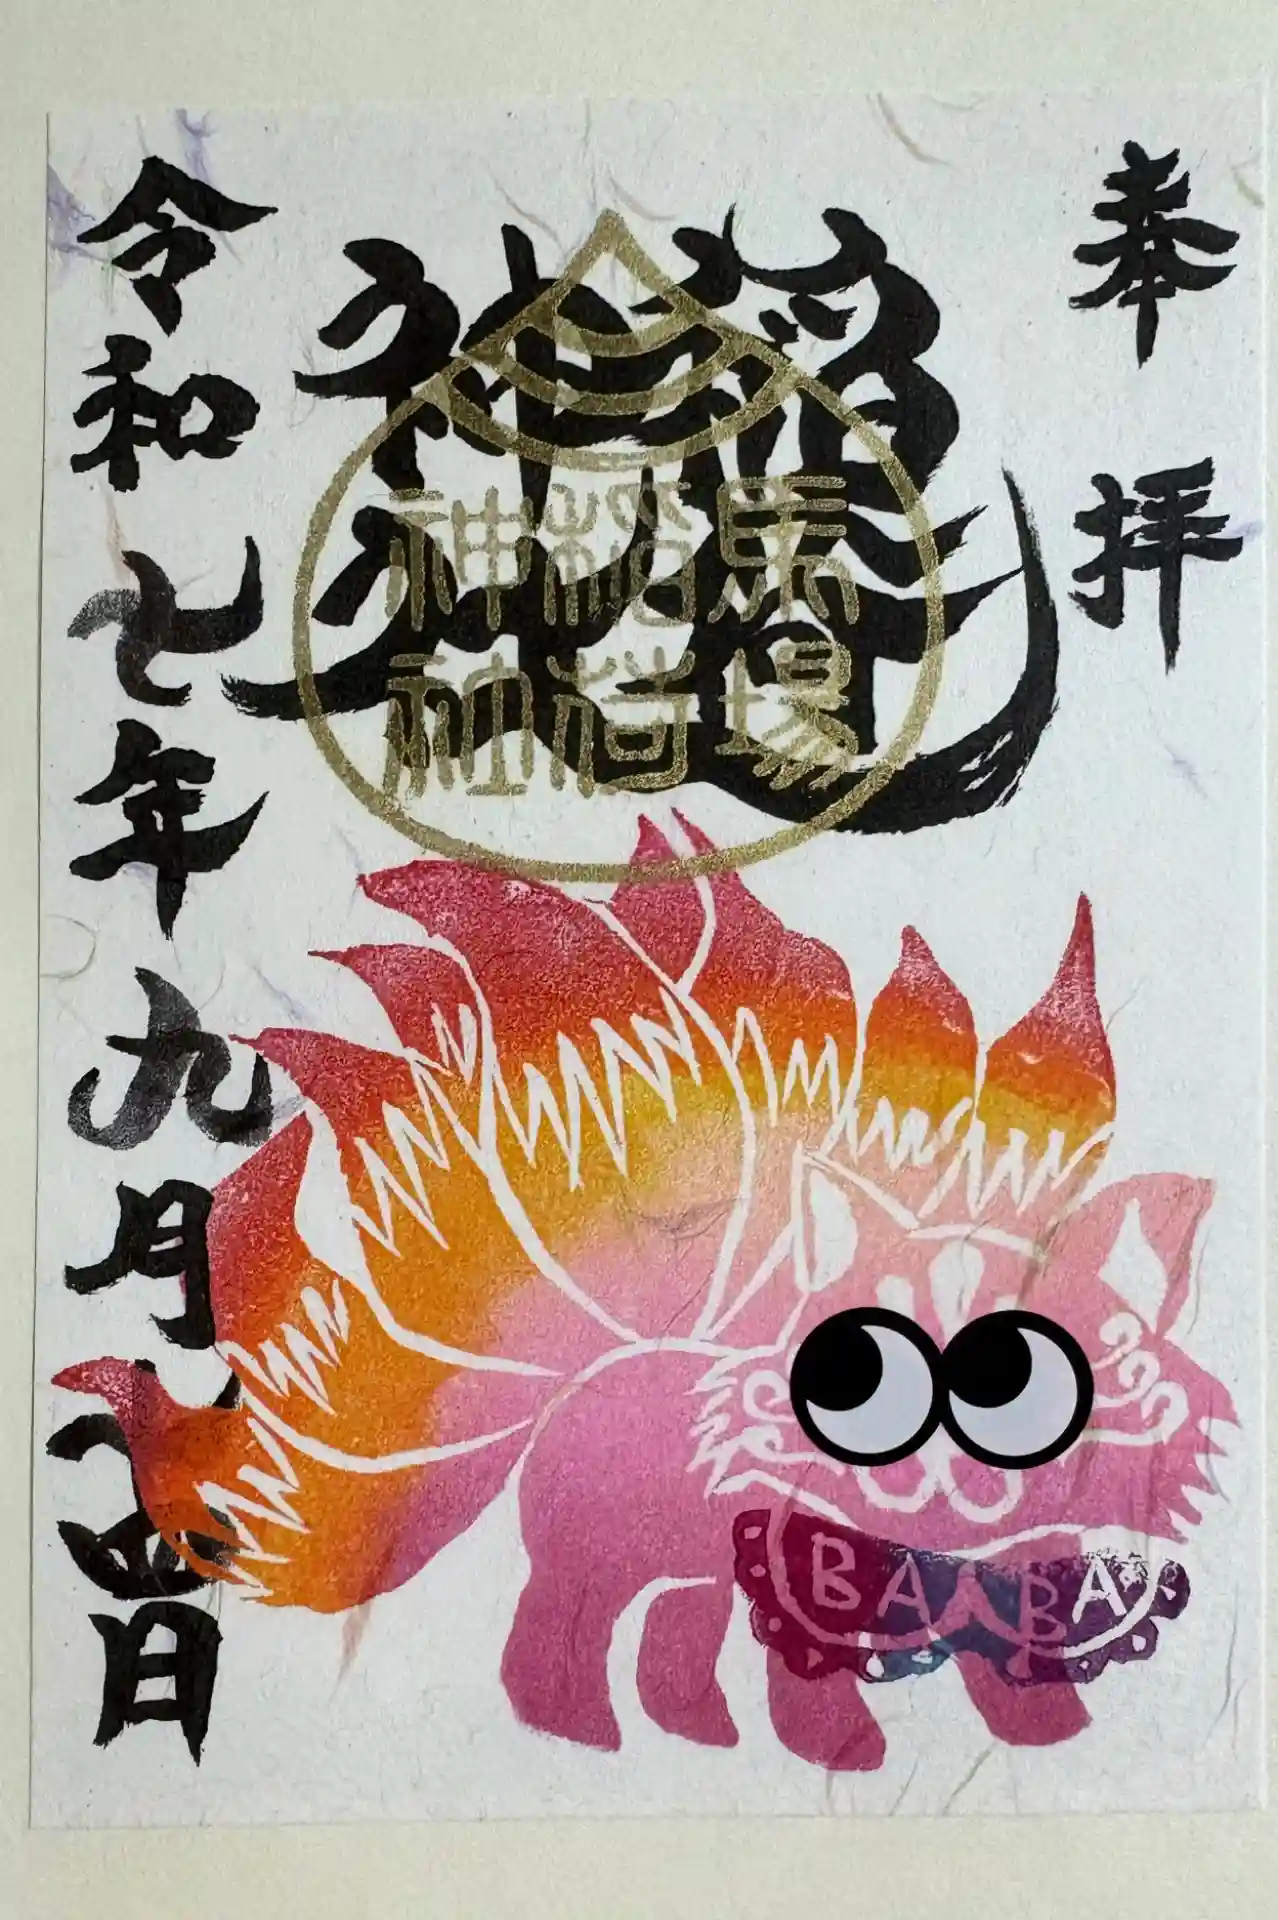 奉拝
稲荷
神社
馬場
稲荷
神社
令和七年九月四日
BABA